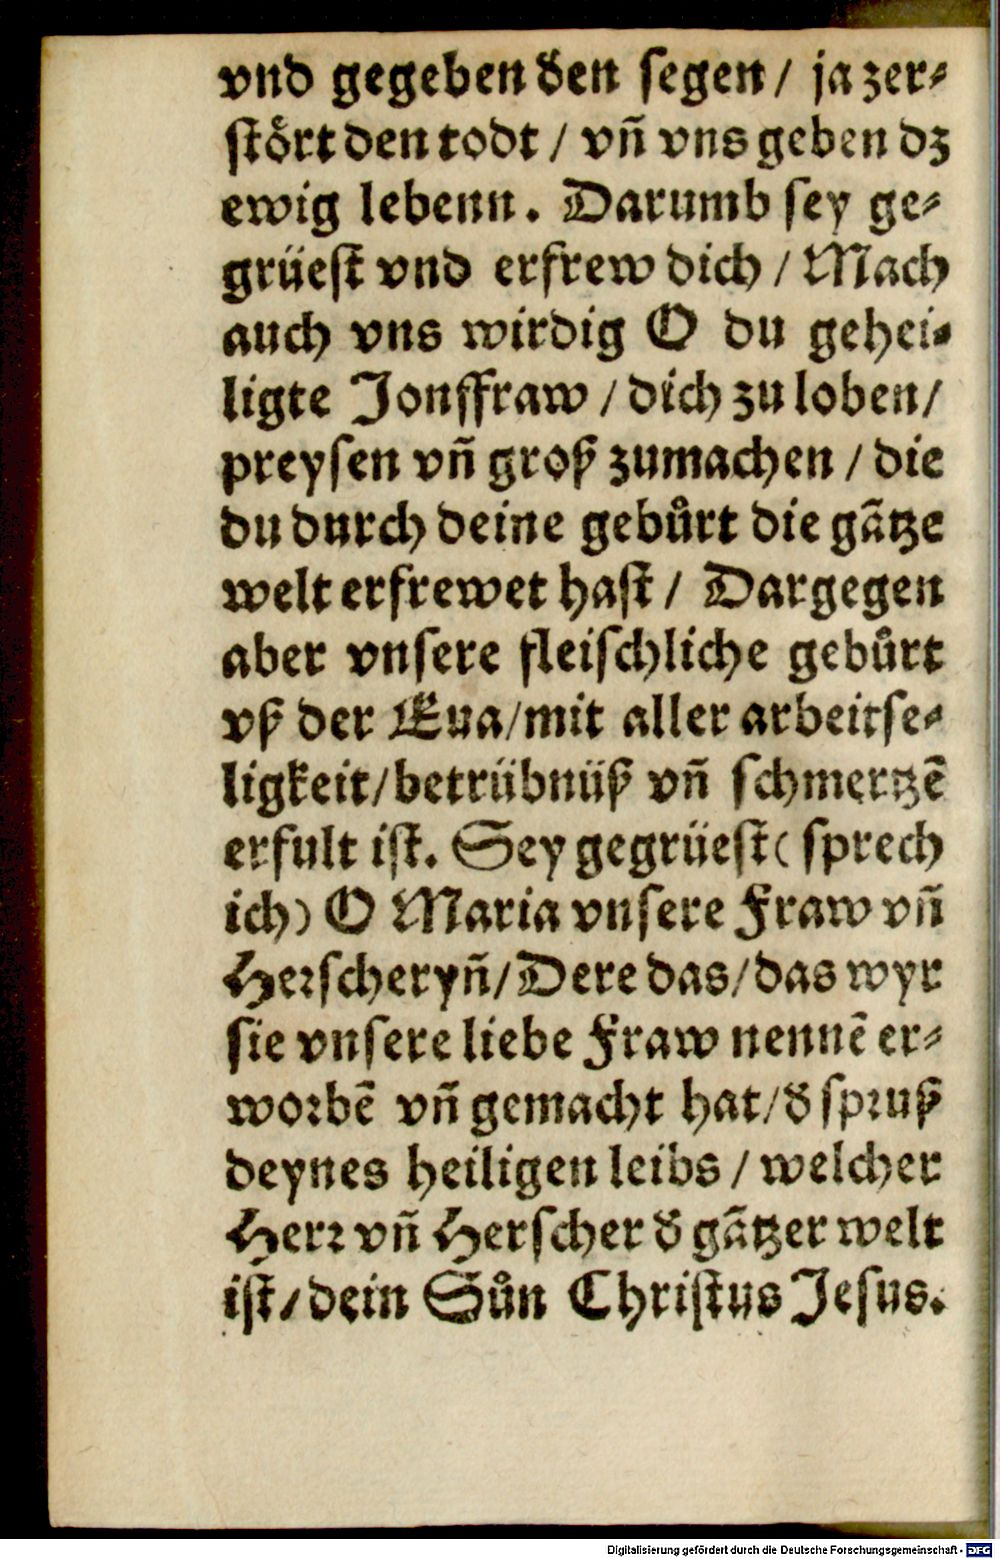 vnd gegeben đen segen / ja zer⸗
stoͤrt den todt / vñ vns geben dz
ewig lebenn. Darumb sey ge⸗
grüest vnd erfrew dich / Mach
auch vns wirdig O du gehei⸗
ligte Jonffraw / dich zu loben /
preysen vñ groß zumachen / die
du durch deine gebůrt die gãtze
welt erfrewet hast / Dargegen
aber vnsere fleischliche gebůrt
vß der Eua / mit aller arbeitse⸗
ligkeit / betrübnüß vñ schmertzẽ
erfult ist. Sey gegrüest ( sprech
ich ) O Maria vnsere Fraw vñ
Heꝛscheryñ / Dere das / das wyr
sie vnsere liebe Fraw nennẽ er⸗
woꝛbẽ vñ gemacht hat / đ spꝛuß
deynes heiligen leibs / welcher
Herꝛ vñ Herscher đ gãtzer welt
ist / dein Sůn Christus Jesus.
Digitalisierung gefördert durch die Deutsche Forschungsgemeinschaft - DFG